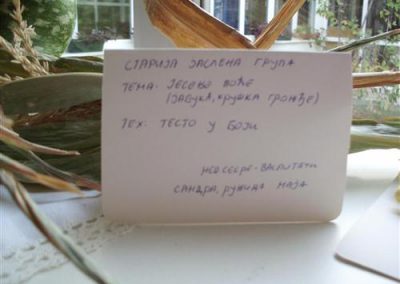 СТАРИЈА ЈАСЛЕНА ГРУПА
ТЕМА: ЈЕСЕЊЕ ВОЋЕ
(ЈАБУКА, КРУШКА ГРОЖЂЕ)
ТЕХ: ТЕСТО У БОЈИ
МЕД. СЕСТРЕ - ВАСПИТАЧИ
САНДРА, РУЖИЦА МАЈА